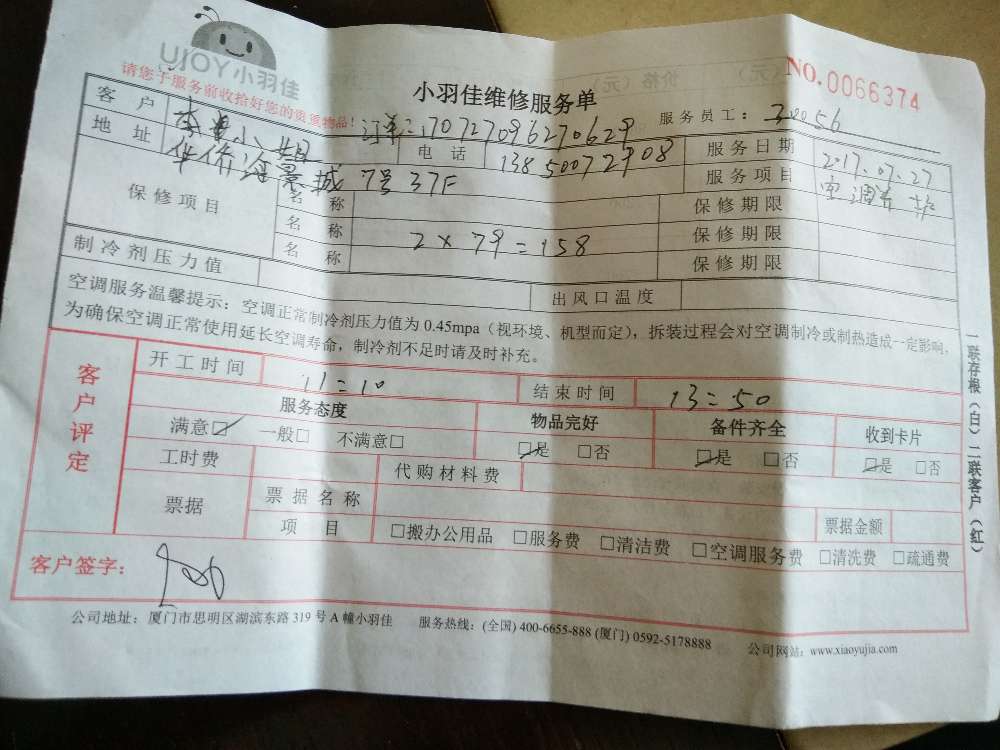 UJOY小羽佳
请您于服务前收拾好您的贵重物品!
小羽佳维修服务单
NO.0066374
订单:170727096270629
服务员工:
客户 小姐
电话 13850072908
服务日期 2017.07.27
地址 华侨海景城 7号37F
服务项目 空调
保修项目
名称 保修期限
名称 2×79=158 保修期限
名称 保修期限
制冷剂压力值 出风口温度
空调服务温馨提示:空调正常制冷剂压力值为 0.45mpa(视环境、机型而定),拆装过程会对空调制冷或制热造成一定影响,
为确保空调正常使用延长空调寿命,制冷剂不足时请及时补充。
客户评定
开工时间 11=10 结束时间 13=50
服务态度 物品完好 备件齐全 收到卡片
满意☑ 一般□ 不满意□ ☑是 □否 ☑是 □否 ☑是 □否
工时费 代购材料费
票据 票据名称 票据金额
项目 □搬办公用品 □服务费 □清洁费 □空调服务费 □清洗费 □疏通费
客户签字:
公司地址:厦门市思明区湖滨东路 319 号 A 幢小羽佳 服务热线:(全国) 400-6655-888 (厦门) 0592-5178888 公司网站:www.xiaoyujia.com
一联存根(白)二联客户(红)